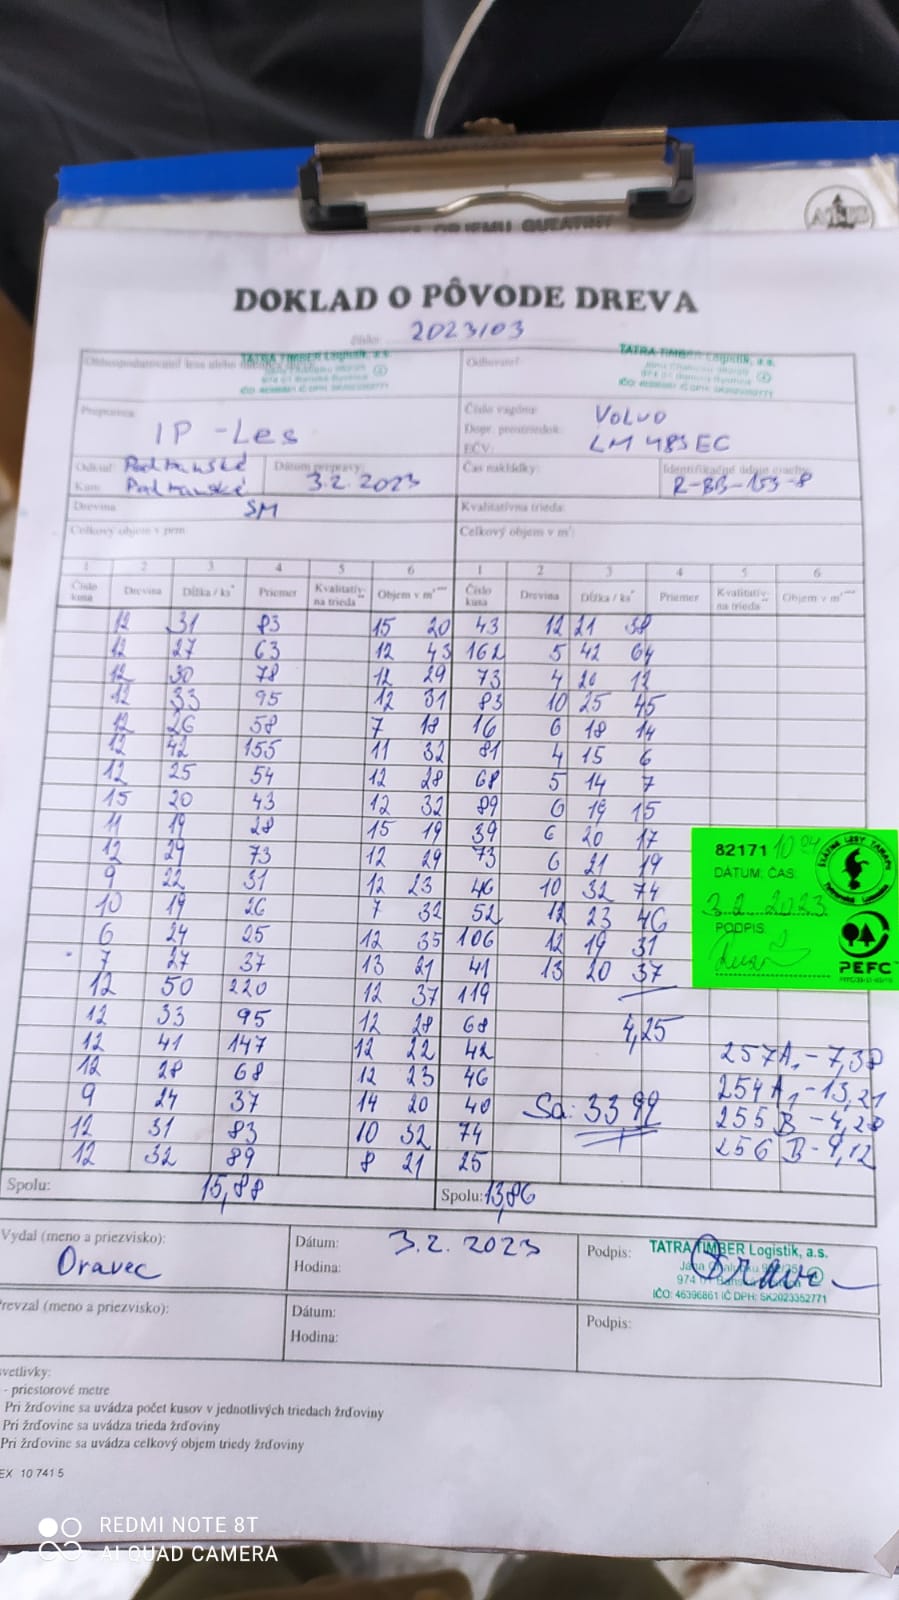 DOKLAD O PÔVODE DREVA
číslo: 2023/03
TATRA TIMBER Logistik, a.s.
Odberateľ: TATRA TIMBER Logistik, a.s.
Prepravca: IP-Les
Číslo vagónu: VOLVO
Dopr. prostriedok:
EČV: LM 485EC
Odkiaľ: Podtanské
Kam: Podtanské
Dátum prepravy: 3.2.2023
Čas nakládky:
Identifikačné údaje
R-BB-153-8
Drevina SM
Kvalitatívna trieda:
Celkový objem v prm:
Celkový objem v m³:
1 2 3 4 5 6 1 2 3 4 5 6
Číslo kusa Drevina Dĺžka / ks* Priemer Kvalitatív- na trieda Objem v m³*** Číslo kusa Drevina Dĺžka / ks* Priemer Kvalitatív- na trieda Objem v m³***
12 31 83 15 20 43 12 21 38
12 27 63 12 43 162 5 42 64
12 30 78 12 29 73 4 20 12
12 33 95 12 31 83 10 25 45
12 26 58 7 18 16 6 18 14
12 42 155 11 32 81 4 15 6
12 25 54 12 28 68 5 14 7
15 20 43 12 32 89 6 19 15
11 19 28 15 19 39 6 20 17
12 29 73 12 29 73 6 21 19
9 22 31 12 23 46 10 32 74
10 19 26 7 32 52 12 23 46
6 24 25 12 35 106 12 19 31
7 27 37 13 21 41 13 20 37
12 50 220 12 37 119
12 33 95 12 28 68 4,25
12 41 147 12 22 42 257A - 7,38
12 28 68 12 23 46 254A - 13,21
9 24 37 14 20 40 Sa: 33 99 255 B - 4,28
12 31 83 10 32 74 256 B - 9,12
12 32 89 8 21 25
Spolu: 15,88 Spolu: 13,86
82171 10 04
DÁTUM, ČAS:
3.2.2023
PODPIS
ŠTÁTNE LESY TANAPU
PEFC
Vydal (meno a priezvisko):
Oravec
Dátum: 3.2.2023
Hodina:
Podpis:
TATRA TIMBER Logistik, a.s.
IČO: 46396861 IČ DPH: SK2023352771
Prevzal (meno a priezvisko):
Dátum:
Hodina:
Podpis:
svetlivky:
- priestorové metre
Pri žrďovine sa uvádza počet kusov v jednotlivých triedach žrďoviny
Pri žrďovine sa uvádza trieda žrďoviny
Pri žrďovine sa uvádza celkový objem triedy žrďoviny
EX 10 741 5
REDMI NOTE 8T
AI QUAD CAMERA